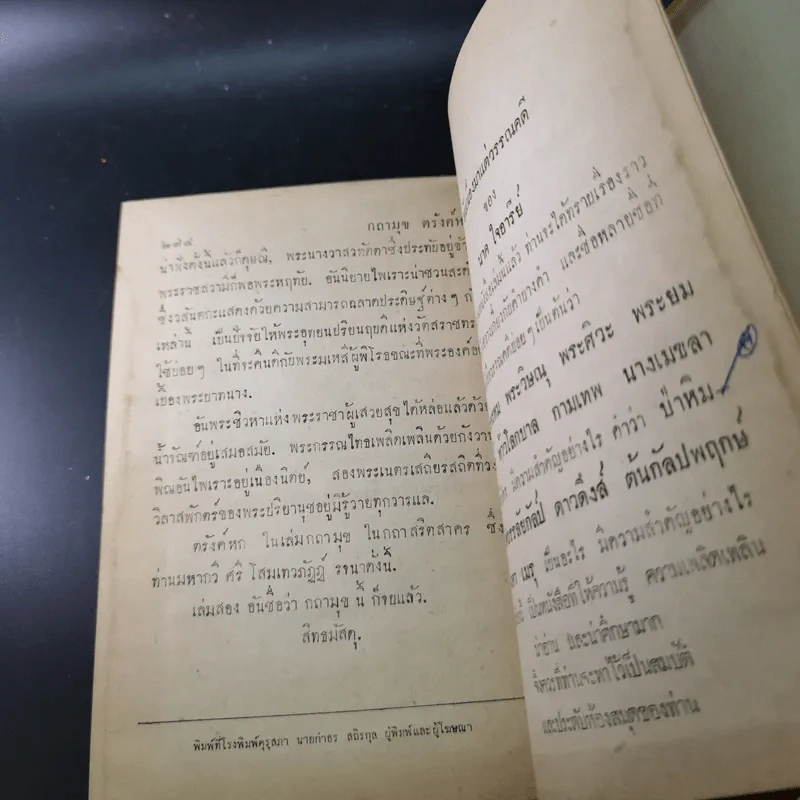 ๒๗๘
กถามุข ตรังค์ห
น่าฟังดั่งนี้แล้วก็ดุษณี, พระนางวาสวทัตตาซึ่งประทับอยู่ข้า
พระราชสวามีก็พอพระหฤทัย. อันนิยายไพเราะน่าชวนสะดั
ซึ่งวสันตกะแสดงด้วยความสามารถฉลาดประดิษฐ์ต่างๆ ก
เหล่านี้ เป็นปัจจัยให้พระอุทยนปริยนฤบดีแห่งวัตสราชทร
ใช้บ่อยๆ ในที่จะคืนดีกับพระมเหสีผู้พิโรธขณะที่พระองค์อ
เยื้องพระยาทนาง.
อันพระชิวหาแห่งพระราชาผู้เสวยสุข ได้หล่อแล้วด้วย
น้ำจัณฑ์อยู่เสมอสมัย. พระกรรณไทธเพลิดเพลินด้วยกังวาน
พิณอันไพเราะอยู่เนืองนิตย์, สองพระเนตรเสถียรสถิตที่วง
วิลาสพักตร์ของพระปริยานุชอยู่มิรู้วายทุกวารแล.
ตรังค์หก ในเล่มกถามุข ในกถาสริตสาคร ซึ่ง
ท่านมหากวี ศรี โสมเทวภัฏฏ์ รจนาดั่งนี้.
เล่มสอง อันชื่อว่า กถามุข นี้ ก็จบแล้ว.
สิทธมัสตุ.
พิมพ์ที่โรงพิมพ์คุรุสภา นายกำธร สถิรกุล ผู้พิมพ์และผู้โฆษณา
เนื่องมาแต่วรรณคดี
ของ
นาค ใจอารีย์
แล้ว ท่านจะได้ทราบเรื่องราว
และชื่อหลายชื่อที่
วรรณคดีบ่อยๆ เป็นต้นว่า
พระวิษณุ พระศิวะ พระยม
โลกบาล กามเทพ นางเมขลา
มีความสำคัญอย่างไร คำว่า ป่าหิม
ดาวดึงส์ ต้นกัลปพฤกษ์
เมรุ เป็นอะไร มีความสำคัญอย่างไร
เป็นหนังสือที่ให้ความรู้ ความเพลิดเพลิน
น่าอ่าน และน่าศึกษามาก
จึงควรที่ท่านจะหาไว้เป็นสมบัติ
และประดับห้องสมุดของท่าน